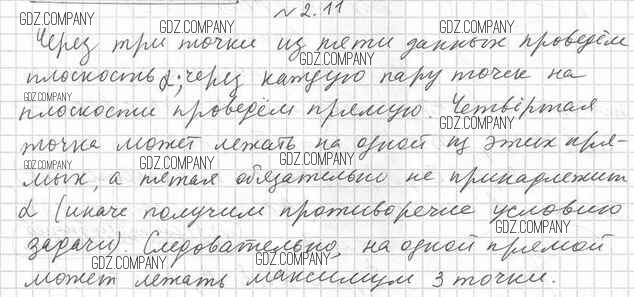 № 2.11
GDZ.COMPANY GDZ.COMPANY GDZ.COMPANY
Через три точки из пяти данных проведём
GDZ.COMPANY
плоскость α; через каждую пару точек на
GDZ.COMPANY
плоскости проведём прямую. Четвёртая
GDZ.COMPANY
точка может лежать на одной из этих пря-
GDZ.COMPANY GDZ.COMPANY GDZ.COMPANY
мых, а пятая обязательно не принадлежит
α (иначе получим противоречие условию
GDZ.COMPANY
задачи). Следовательно, на одной прямой
GDZ.COMPANY GDZ.COMPANY GDZ.COMPANY
может лежать максимум 3 точки.